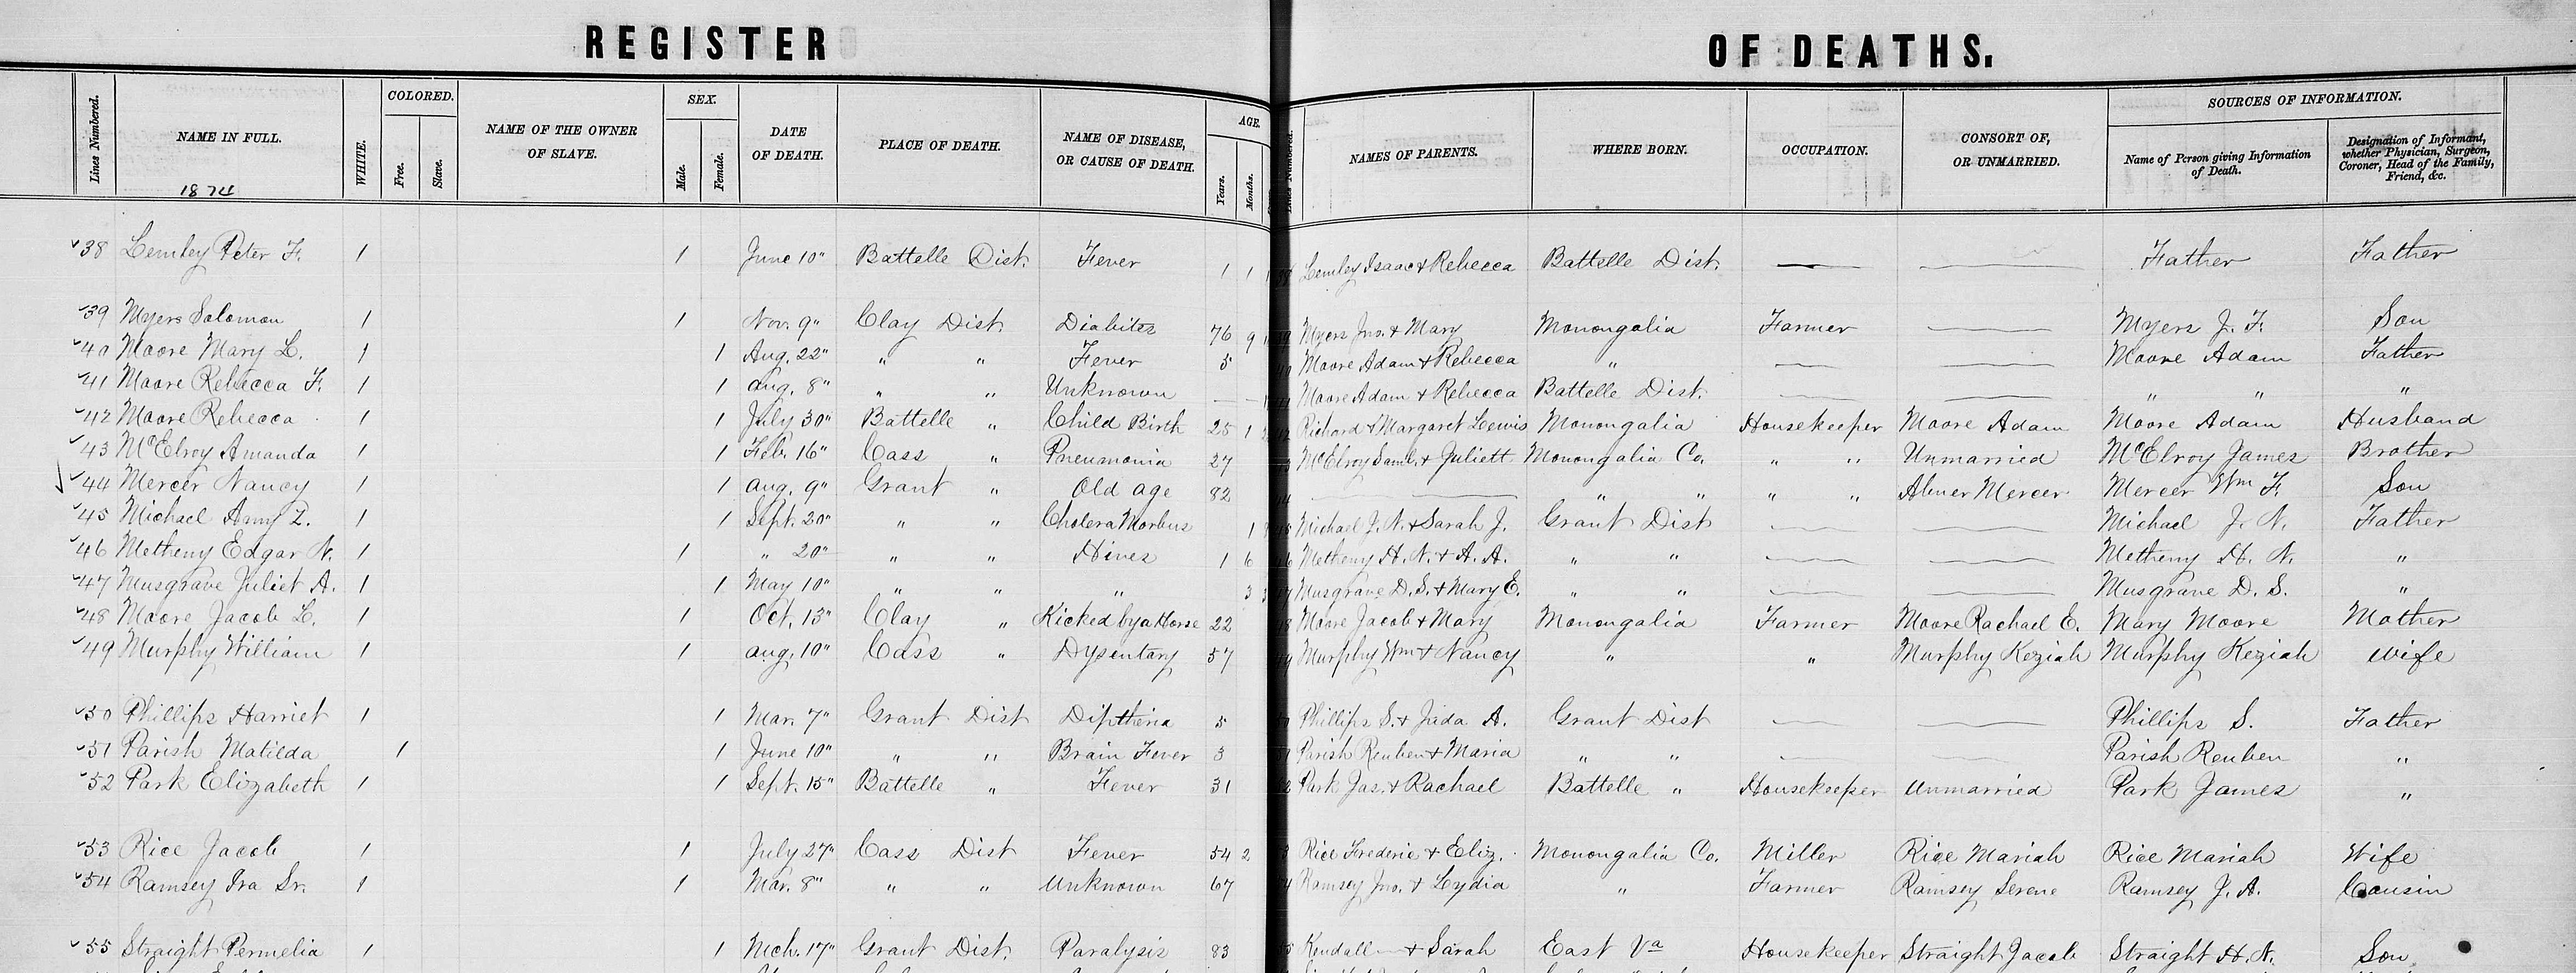 REGISTER OF DEATHS.
Lines Numbered. NAME IN FULL. WHITE. COLORED. Free. Slave. NAME OF THE OWNER OF SLAVE. SEX. Male. Female. DATE OF DEATH. PLACE OF DEATH. NAME OF DISEASE, OR CAUSE OF DEATH. AGE. Years. Months. Lines Numbered. NAMES OF PARENTS. WHERE BORN. OCCUPATION. CONSORT OF, OR UNMARRIED. SOURCES OF INFORMATION. Name of Person giving Information of Death. Designation of Informant, whether Physician, Surgeon, Coroner, Head of the Family, Friend, &c.
1874
38 Lemley Peter F. 1 1 June 10" Battelle Dist. Fever 1 1 Lemley Isaac & Rebecca Battelle Dist. Father Father
39 Myers Solomon 1 1 Nov. 9" Clay Dist Diabites 76 9 Myers Jno. & Mary Monongalia Farmer Myers J. F. Son
40 Moore Mary L. 1 1 Aug. 22" " " Fever 5 Moore Adam & Rebecca " Moore Adam Father
41 Moore Rebecca F. 1 1 Aug. 8" " " Unknown Moore Adam & Rebecca Battelle Dist. " " "
42 Moore Rebecca 1 1 July 30" Battelle " Child Birth 25 1 Richard & Margaret Lewis Monongalia Housekeeper Moore Adam Moore Adam Husband
43 McElroy Amanda 1 1 Feb. 16" Cass " Pneumonia 27 McElroy Saml. & Juliett Monongalia Co. " " Unmarried McElroy James Brother
44 Mercer Nancy 1 1 Aug. 9" Grant " Old age 82 " " " " Abner Mercer Mercer Wm F. Son
45 Michael Amy Z. 1 1 Sept. 20" " " Cholera Morbus 1 Michael J. N. & Sarah J. Grant Dist Michael J. N. Father
46 Metheny Edgar N. 1 1 " 20" " " Hives 1 6 Metheny H. N. & A. A. " " Metheny H. N. "
47 Musgrave Juliet A. 1 1 May 10" " " " 3 Musgrave D. S. & Mary E. " " Musgrave D. S. "
48 Moore Jacob L. 1 1 Oct. 13" Clay " Kicked by a Horse 22 Moore Jacob & Mary Monongalia Farmer Moore Rachael E. Mary Moore Mother
49 Murphy William 1 1 Aug. 10" Cass " Dysentary 57 Murphy Wm & Nancy " " Murphy Keziah Murphy Keziah wife
50 Phillips Harriet 1 1 Mar. 7" Grant Dist Diptheria 5 Phillips S. & Juda A. Grant Dist Phillips S. Father
51 Parish Matilda 1 1 June 10" " " Brain Fever 3 Parish Reuben & Maria " " Parish Reuben "
52 Park Elizabeth 1 1 Sept. 15" Battelle " Fever 31 Park Jas. & Rachael Battelle " Housekeeper Unmarried Park James "
53 Rice Jacob 1 1 July 27" Cass Dist Fever 54 2 Rice Frederic & Eliz. Monongalia Co. Miller Rice Mariah Rice Mariah Wife
54 Ramsey Ira Sr. 1 1 Mar. 8" " " Unknown 67 Ramsey Jno. & Lydia " Farmer Ramsey Serene Ramsey J. A. Cousin
55 Straight Permelia 1 1 Mch. 17" Grant Dist. Paralysis 83 Kendall & Sarah East Va Housekeeper Straight Jacob Straight H. N. Son